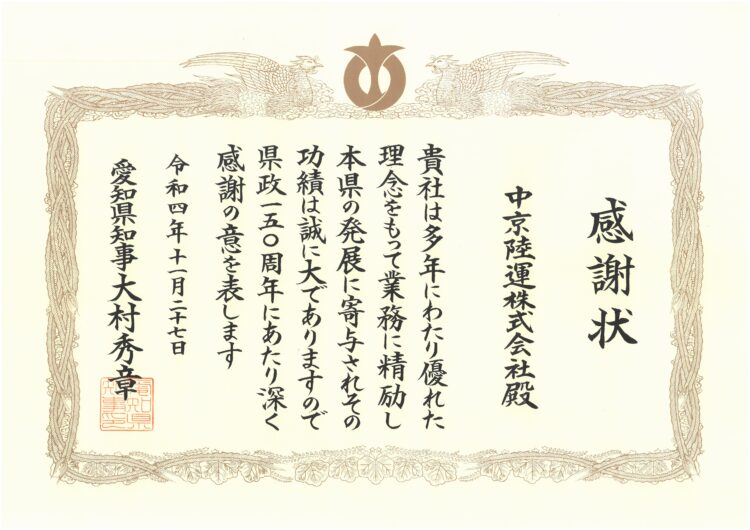 感謝状
中京陸運株式会社殿
貴社は多年にわたり優れた
理念をもって業務に精励し
本県の発展に寄与されその
功績は誠に大でありますので
県政一五〇周年にあたり深く
感謝の意を表します
令和四年十一月二十七日
愛知県知事大村秀章
愛知県
知事之印